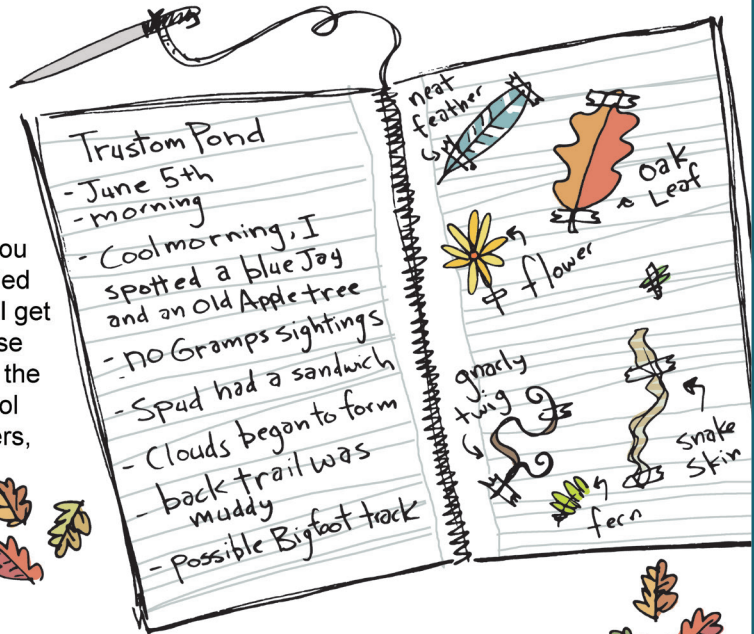 ou
ed
l get
se
the
ol
ers,
Trustom Pond
- June 5th
- morning
- Cool morning, I
spotted a blue Jay
and an Old Apple tree
- no Gramps sightings
- Spud had a sandwich
- Clouds began to form
- back trail was
muddy
- possible Bigfoot track
neat
feather
oak
Leaf
flower
gnarly
twig
snake
skin
fern